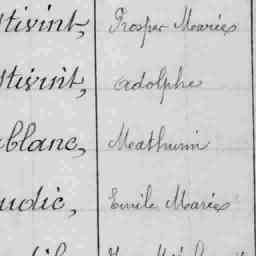 Stivint, Prosper Marie
Stivint, Adolphe
blanc, Mathurin
udic, Emile Marie